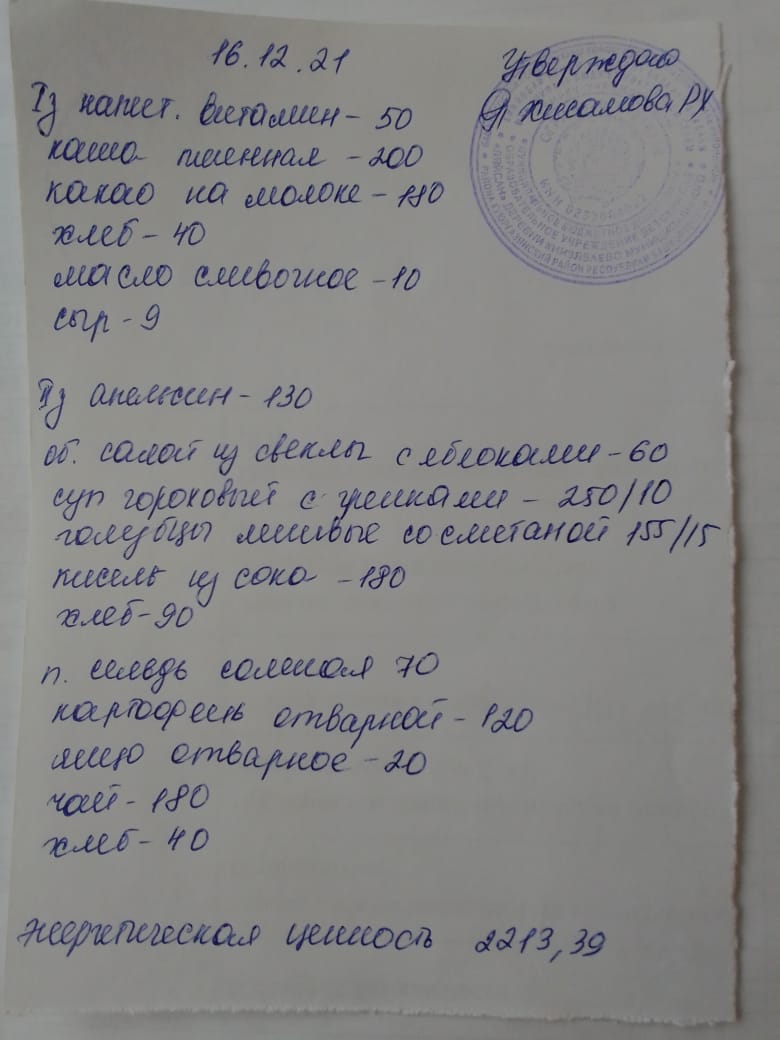 16.12.21
Утверждаю
Хисамова РХ
Iз напит. Витамин - 50
каша пшенная - 200
какао на молоке - 180
хлеб - 40
масло сливочное - 10
сыр - 9
IIз апельсин - 130
об. салат из свеклы с яблоками - 60
суп гороховый с гренками - 250/10
голубцы ленивые со сметаной 155/15
кисель из сока - 180
хлеб - 90
п. сельдь соленая 70
картофель отварной - 120
яйцо отварное - 20
чай - 180
хлеб - 40
энергетическая ценность 2213,39